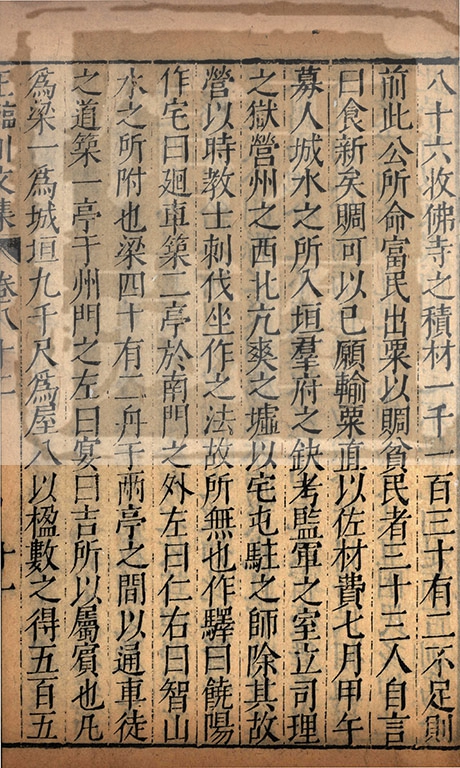 八十六收佛寺之積材一千一百三十有二不足則
前此公所命富民出粟以賙貧民者三十三人自言
曰食新矣賙可以已願輸粟直以佐材費七月甲午
募人城水之所入垣羣府之缺考監軍之室立司理
之獄營州之西北亢爽之墟以宅屯駐之師除其故
營以時教士刺伐坐作之法故所無也作驛曰饒陽
作宅曰廻車築二亭於南門之外左曰仁右曰智山
水之所附也梁四十有二舟于兩亭之間以通車徒
之道築一亭于州門之左曰宴曰吉所以屬賓也凡
為梁一為城垣九千尺為屋八以楹數之得五百五
王臨川文集 卷八十二 十一